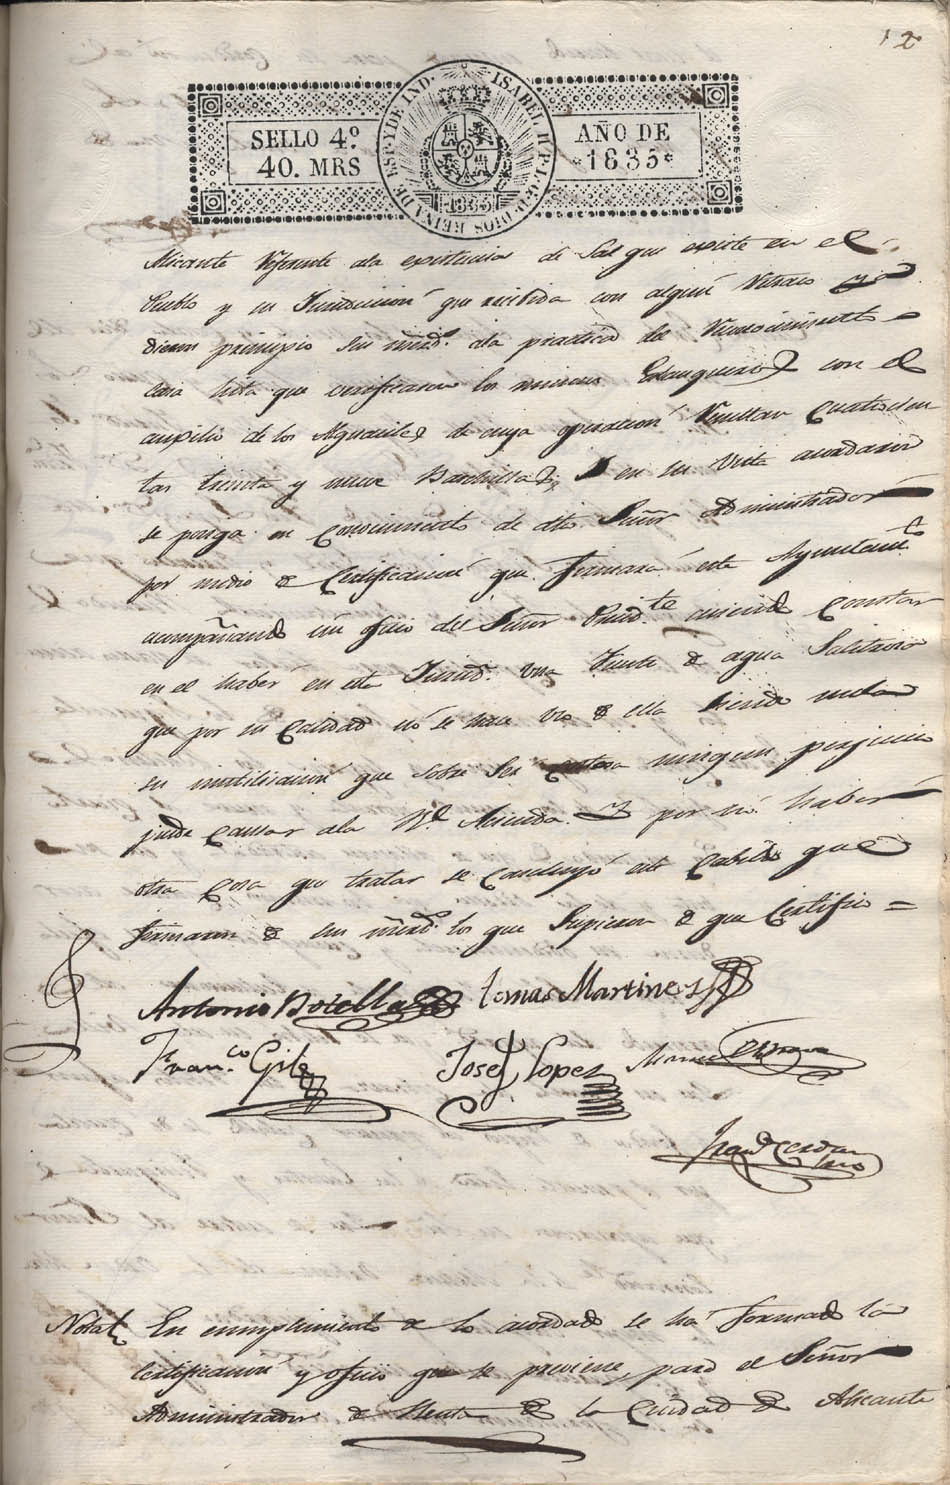 12
SELLO 4º
40. MRS
ISABEL II P. L. G. D. DIOS REINA DE ESP. Y DE IND.
1835
AÑO DE
1835
Alicante referente ala existencia de Sal que existe en el
Pueblo y su Jurisdiccion que recibida con algun retraso
dieron principio sus mrzd.s ala practica del reconocimiento
casa hita que verificaron los mismos Estanqueros con el
auxilio de los Alguaciles de cuya operacion resultan cuatrocien
tas treinta y nueve Barchillas, y en su vista acordaron
se ponga en conocimiento de dho Señor Administrador
por medio de Certificacion que firmará este Ayuntam.to
acompañando un oficio del Señor Presid.te haciendo constar
en el haber en esta Jurisd.n una Fuente de agua Salitrosa
que por su calidad no se hace uso de ella siendo
su inutilizacion que sobre ser ningun perjuicio
puede causar ala R.l Acienda. Y por no haber
otra cosa que tratar se concluyó este Cabildo que
firmaron de sus mrzd.s los que Supieron de que Certifico =
Antonio Botella Tomas Martines
Fran.co Gil Josef Lopez
Notal En cumplimiento de lo acordado se ha formado la
certificacion y oficio que se previene para el Señor
Administrador de Rentas de la Ciudad de Alicante